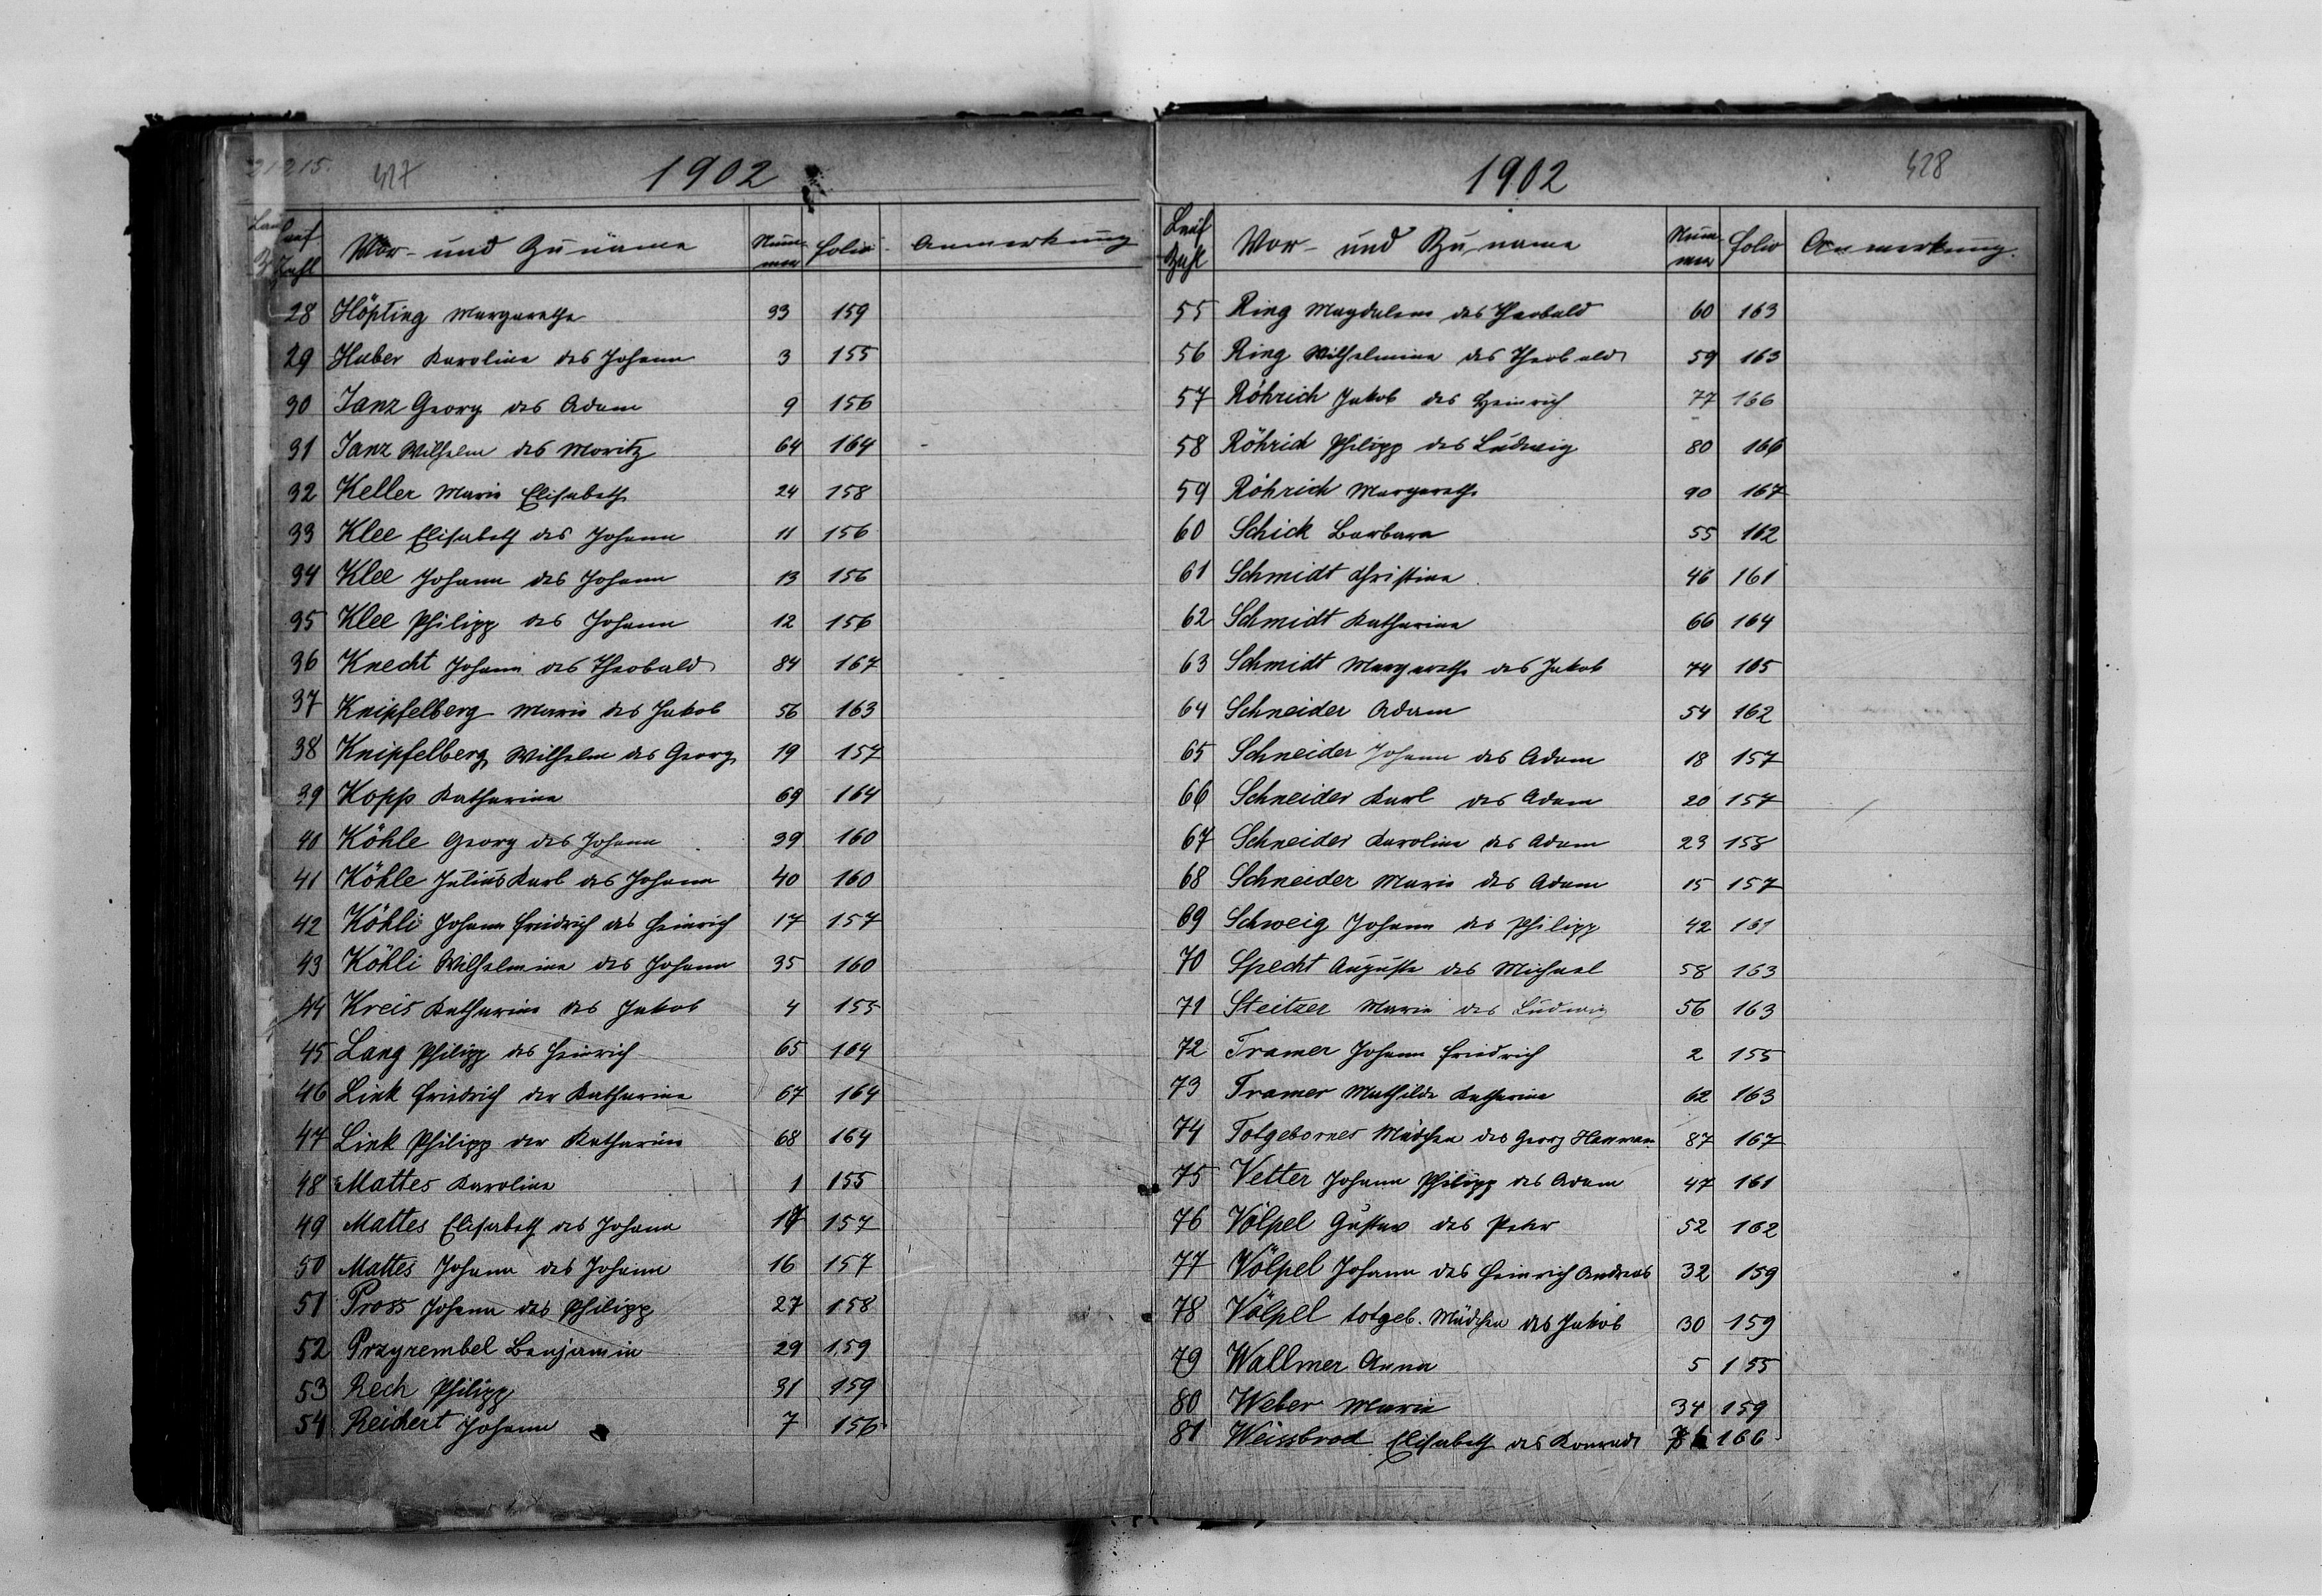 215.
427
1902
Lauf Zahl Vor- und Zuname Nummer folio Anmerkung
28 Höpting Margarethe 33 159
29 Huber Karolina des Johann 3 155
30 Janz Georg des Adam 9 156
31 Janz Wilhelm des Moritz 64 164
32 Keller Maria Elisabeth 24 158
33 Klee Elisabeth des Johann 11 156
34 Klee Johann des Johann 13 156
35 Klee Philipp des Johann 12 156
36 Knecht Johann des Theobald 84 167
37 Knipfelberg Maria des Jakob 56 163
38 Knipfelberg Wilhelm des Georg 19 157
39 Kopp Katharina 69 164
40 Köhle Georg des Johann 39 160
41 Köhle Julius Karl des Johann 40 160
42 Köhli Johann Friedrich des Heinrich 17 157
43 Köhli Wilhelmine des Johann 35 160
44 Kreis Katharina des Jakob 4 155
45 Lang Philipp des Heinrich 65 164
46 Link Friedrich der Katharina 67 164
47 Link Philipp der Katharina 68 164
48 Mattes Karolina 1 155
49 Mattes Elisabeth des Johann 157
50 Mattes Johann des Johann 16 157
51 Pross Johann des Philipp 27 158
52 Przyrembel Benjamin 29 159
53 Rech Philipp 31 159
54 Reichert Johann 7 156
1902
428
Lauf Zahl Vor- und Zuname Nummer folio Anmerkung.
55 Ring Magdalena des Theobald 60 163
56 Ring Wilhelmine des Theobald 59 163
57 Röhrich Jakob des Heinrich 77 166
58 Röhrich Philipp des Ludwig 80 166
59 Röhrich Margarethe 90 167
60 Schick Barbara 55 162
61 Schmidt Christina 46 161
62 Schmidt Katharina 66 164
63 Schmidt Margarethe des Jakob 74 165
64 Schneider Adam 54 162
65 Schneider Johann des Adam 18 157
66 Schneider Karl des Adam 20 157
67 Schneider Karolina des Adam 23 158
68 Schneider Maria des Adam 15 157
69 Schweig Johann des Philipp 42 161
70 Specht Auguste des Michael 58 163
71 Steitzer Maria des Ludwig 56 163
72 Tramer Johann Friedrich 2 155
73 Tramer Mathilde Katharina 62 163
74 Totgebornes Mädchen des Georg Hamman 87 167
75 Vetter Johann Philipp des Adam 47 161
76 Völpel Gustav des Peter 52 162
77 Völpel Johann des Heinrich Andreas 32 159
78 Völpel totgeb. Mädchen des Jakob 30 159
79 Wallmer Anna 5 155
80 Weber Maria 34 159
81 Weissbrod Elisabeth des Konrad 166